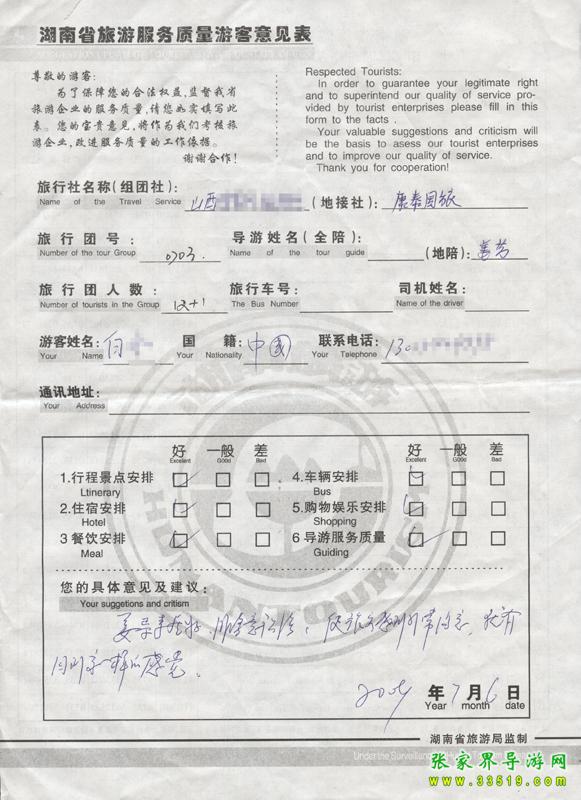 湖南省旅游服务质量游客意见表
尊敬的游客:
为了保障您的合法权益,监督我省
旅游企业的服务质量,请您如实填写此
表。您的宝贵意见,将作为我们考核旅
游企业,改进服务质量的工作依据。
谢谢合作!
Respected Tourists:
In order to guarantee your legitimate right
and to superintend our quality of service pro-
vided by tourist enterprises please fill in this
form to the facts .
Your valuable suggestions and criticism will
be the basis to asess our tourist enterprises
and to improve our quality of service.
Thank you for cooperation!
旅行社名称(组团社): 山西 (地接社): 康泰国旅
Name of the Travel Service
旅行团号: 0703. 导游姓名(全陪) (地陪):
Number of the tour Group Name of the tour guide
旅行团人数: 12+1 旅行车号: 司机姓名:
Number of tourists in the Group The Bus Number Name of the driver
游客姓名: 白 国籍: 中國 联系电话: 130
Your Name Your Nationality Your Telephone
通讯地址:
Your Address
好 一般 差 好 一般 差
Excellent Good Bad Excellent Good Bad
1.行程景点安排 4.车辆安排
Ltinerary Bus
2.住宿安排 5.购物娱乐安排
Hotel Shopping
3 餐饮安排 6 导游服务质量
Meal Guiding
您的具体意见及建议:
Your suggetions and critism
年 7 月 6 日
Year month date
湖南省旅游局监制
Under the Surveillance
张家界导游网
www.33519.com